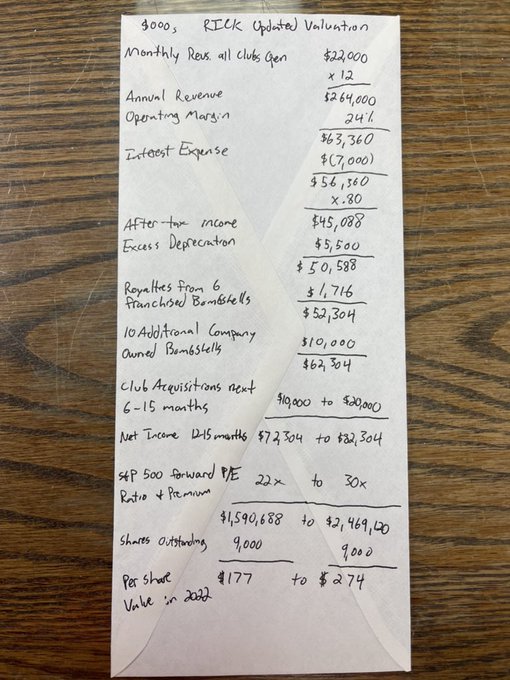 $000s RICK Updated Valuation
Monthly Revs. all clubs Gen $22,000
x 12
Annual Revenue $264,000
Operating Margin 24%
$63,360
Interest Expense $(7,000)
$56,360
x.80
After-tax income $45,088
Excess Depreciation $5,500
$50,588
Royalties from 6
franchised Bombshells $1,716
$52,304
10 Additional Company
Owned Bombshells $10,000
$62,304
Club Acquisitions next
6-15 months $10,000 to $20,000
Net Income 12-15 months $72,304 to $82,304
S&P 500 forward P/E 22x to 30x
Ratio & Premium
$1,590,688 to $2,469,120
Shares Outstanding 9,000 9,000
Per share $177 to $274
Value in 2022